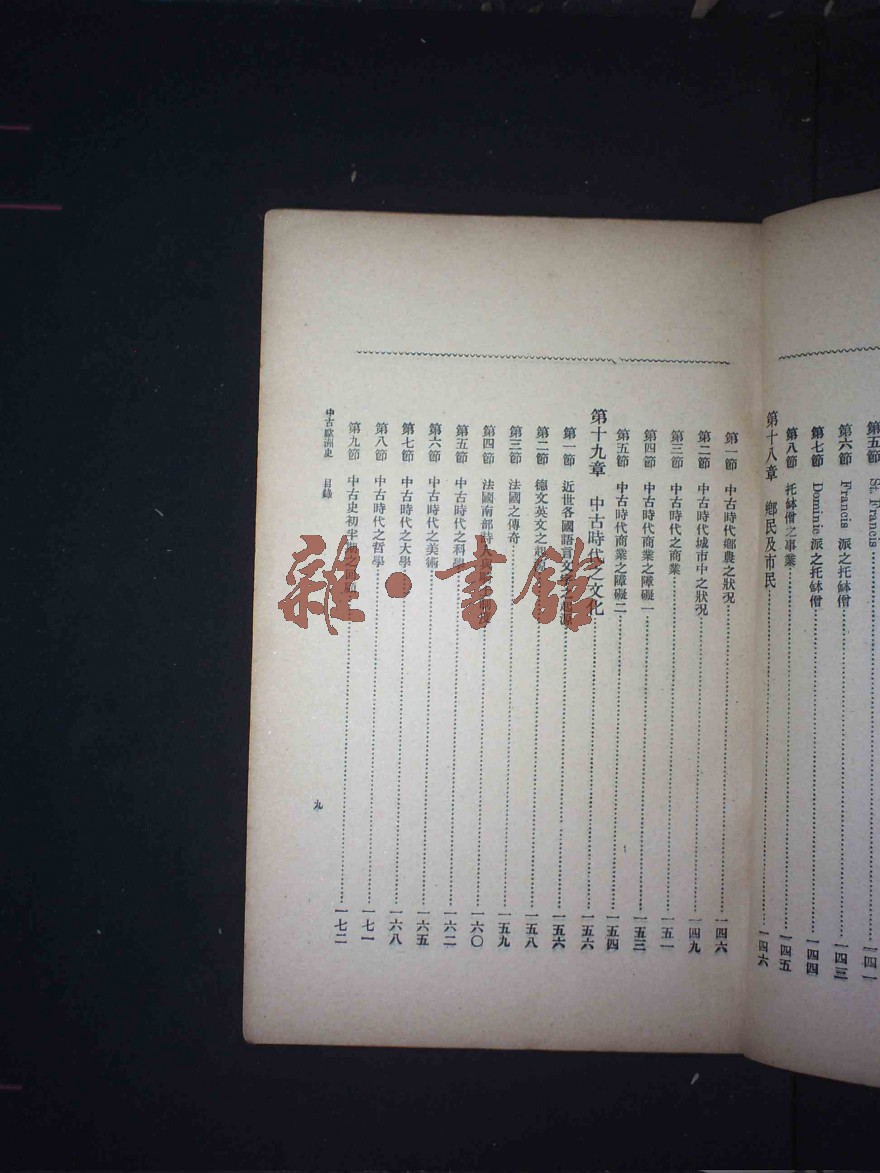 第五節 St. Francis 一四一
第六節 Francis 派之托鉢僧 一四三
第七節 Dominic 派之托鉢僧 一四四
第八節 托鉢僧之事業 一四五
第十八章 鄉民及市民 一四六
第一節 中古時代鄉農之狀況 一四六
第二節 中古時代城市中之狀況 一四九
第三節 中古時代之商業 一五一
第四節 中古時代商業之障礙一 一五三
第五節 中古時代商業之障礙二 一五四
第十九章 中古時代之文化 一五六
第一節 近世各國語言文字之起源 一五六
第二節 德文英文之起源 一五八
第三節 法國之傳奇 一五九
第四節 法國南部詩人 一六〇
第五節 中古時代之科學 一六二
第六節 中古時代之美術 一六五
第七節 中古時代之大學 一六八
第八節 中古時代之哲學 一七一
第九節 中古史初半期之回顧 一七二
中古歐洲史 目錄
九
雜·書館